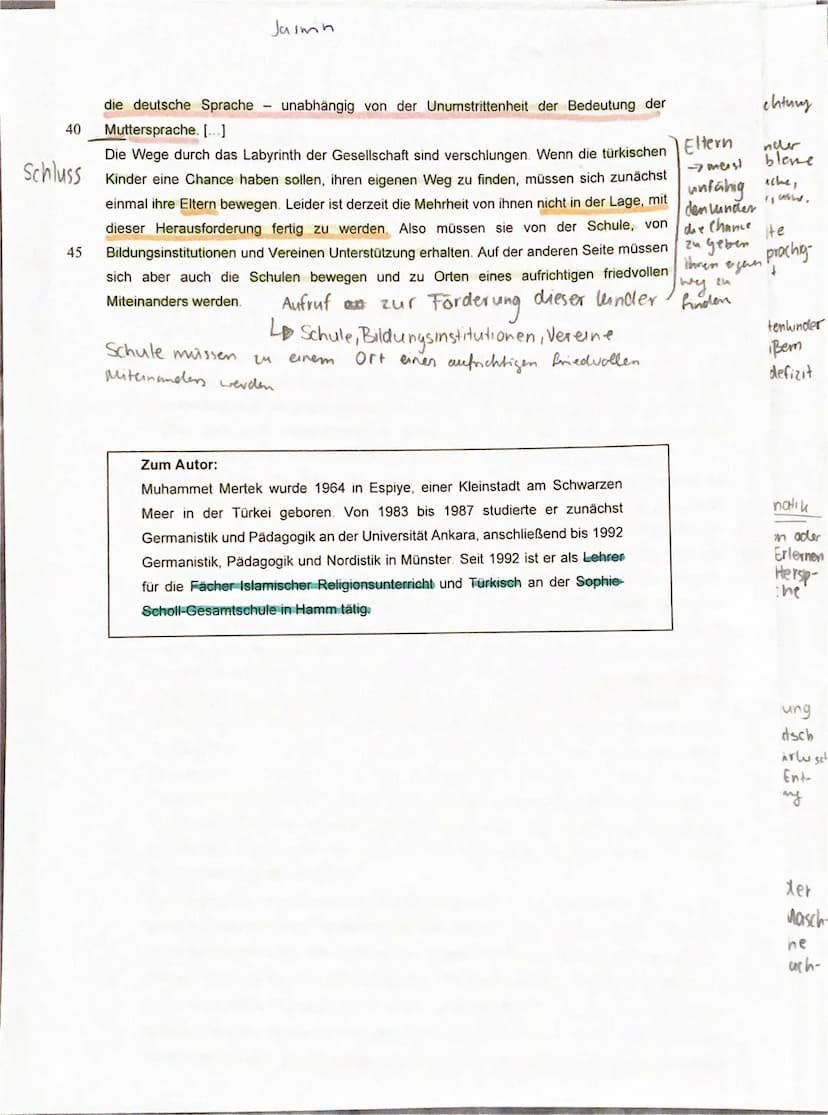 Jasmin
die deutsche Sprache – unabhängig von der Unumstrittenheit der Bedeutung der
40 Muttersprache. [...]
Schluss
Die Wege durch das Labyrinth der Gesellschaft sind verschlungen. Wenn die türkischen
Kinder eine Chance haben sollen, ihren eigenen Weg zu finden, müssen sich zunächst
einmal ihre Eltern bewegen. Leider ist derzeit die Mehrheit von ihnen nicht in der Lage, mit
dieser Herausforderung fertig zu werden. Also müssen sie von der Schule, von
45 Bildungsinstitutionen und Vereinen Unterstützung erhalten. Auf der anderen Seite müssen
sich aber auch die Schulen bewegen und zu Orten eines aufrichtigen friedvollen
Miteinanders werden.
Eltern
→ meist
unfähig
den Kinder
die Chance
zu geben
ihren eigen
weg zu
finden
Aufruf zur Förderung dieser Kinder
↳ Schule, Bildungsinstitutionen, Vereine
Schule müssen zu einem Ort eines aufrichtigen friedvollen
Miteinanders werden
Zum Autor:
Muhammet Mertek wurde 1964 in Espiye, einer Kleinstadt am Schwarzen
Meer in der Türkei geboren. Von 1983 bis 1987 studierte er zunächst
Germanistik und Pädagogik an der Universität Ankara, anschließend bis 1992
Germanistik, Pädagogik und Nordistik in Münster. Seit 1992 ist er als Lehrer
für die Fächer Islamischer Religionsunterricht und Türkisch an der Sophie-
Scholl-Gesamtschule in Hamm tätig.
chtung
nder
te
tenkinder
ßern
defizit
n oder
Erlernen
ung
Ent-
ne